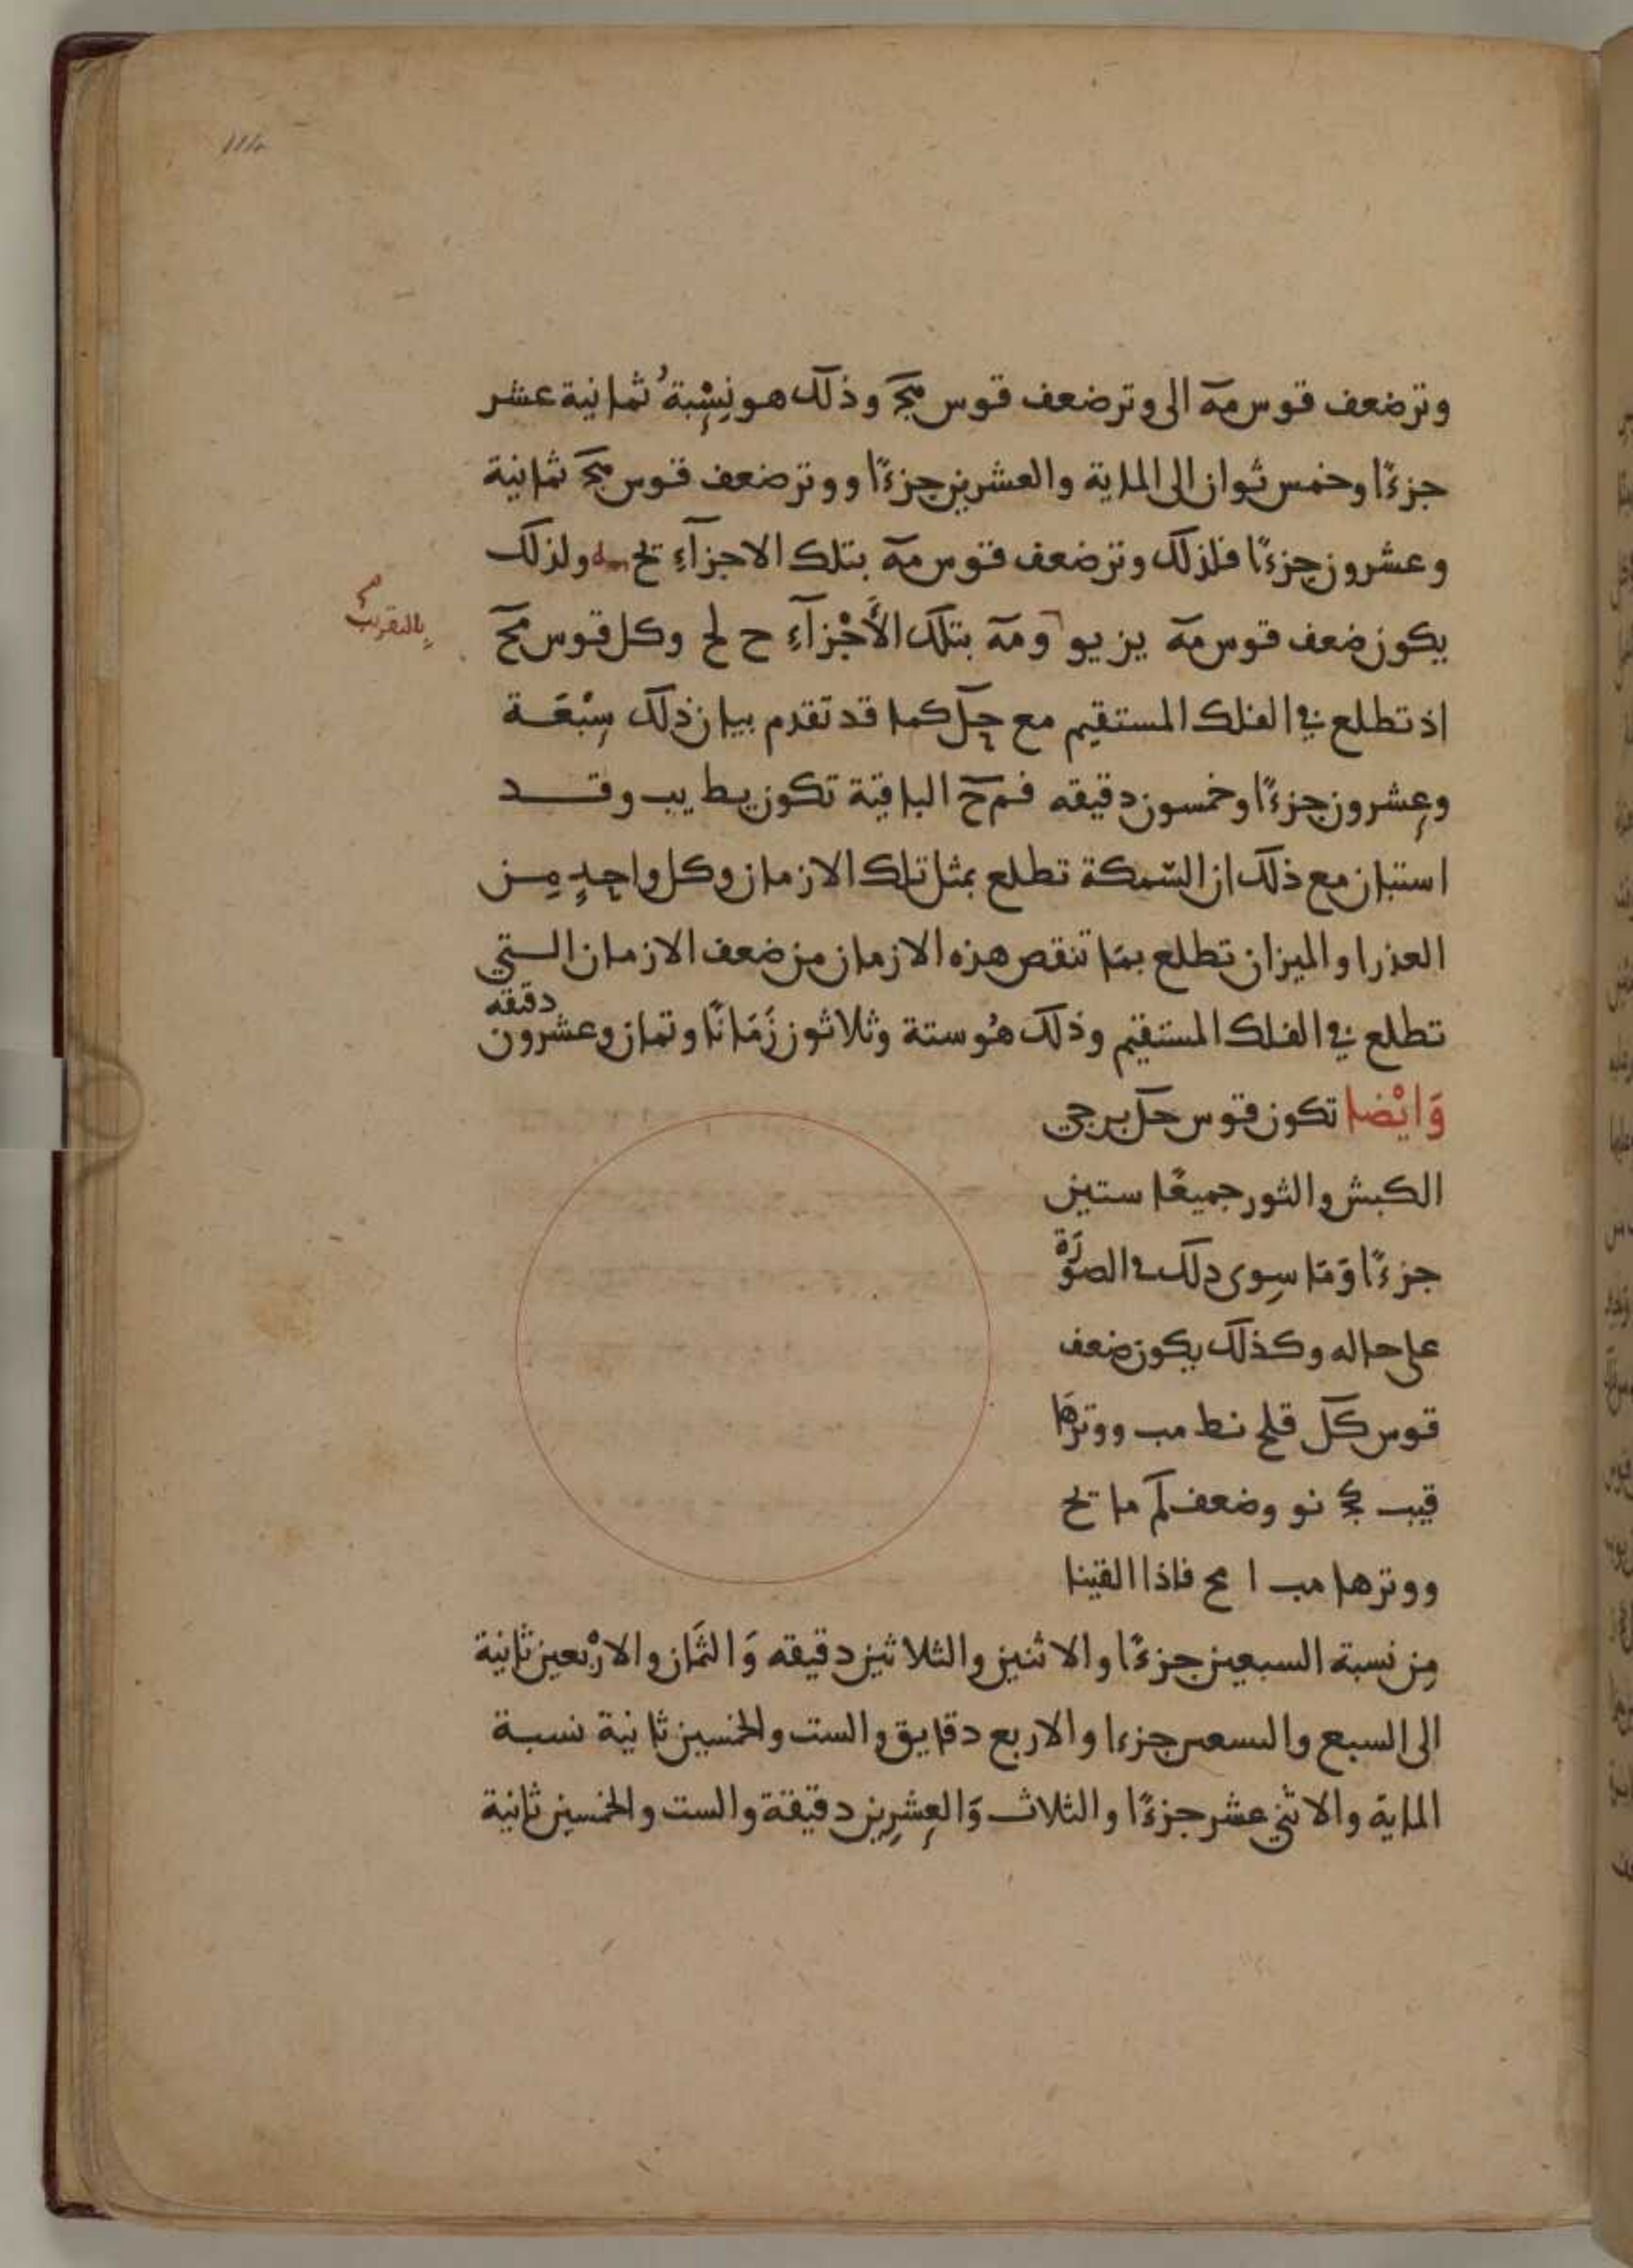 وتر ضعف قوس مه الى وتر ضعف قوس مح وذلك هو نسبة ثمانية عشر
جزءًا وخمس ثوان الى الماية والعشرين جزءًا ووتر ضعف قوس مح ثمانية
وعشرون جزءًا فلذلك وتر ضعف قوس مه بتلك الاجزآءِ يح ولذلك
بالتقريب
يكون ضعف قوس مه يز يو ومه بتلك الأجْزآءِ ح لح وكل قوس مح
اذ تطلع في الفلك المستقيم مع حل كما قد تقدم بيان ذلك سبْعَة
وعشرون جزءًا وخمسون دقيقه فمح الباقية تكون يط يب وقد
استبان مع ذلك ان السّمكة تطلع بمثل تلك الازمان وكل واحدٍ مِن
العذرا والميزان تطلع بمَا تنقص هذه الازمان من ضعف الازمان التي
تطلع في الفلك المستقيم وذلك هُو ستة وثلاثون زَمَانًا وثمان وعشرون دقيقه
وَايْضا تكون قوس حل برجي
الكبش والثور جميعًا ستين
جزءًا وَمَا سِوى دلك في الصوَرة
على حاله وكذلك يكون ضعف
قوس كل قلح نط مب ووترها
قيب كج نو وضعف لم ما يح
ووترها مب ا مح فاذا القينا
مِن نسبة السبعين جزءًا والاثنين والثلاثين دقيقه وَالثمَان والارْبعين ثانية
الى السبع والىسعىں جزءا والاربع دقايق والست والخمسين ثانية نسبة
الماية والاثني عشر جزءًا والثلاث وَالعِشرِين دقيقة والست والخمسين ثانية